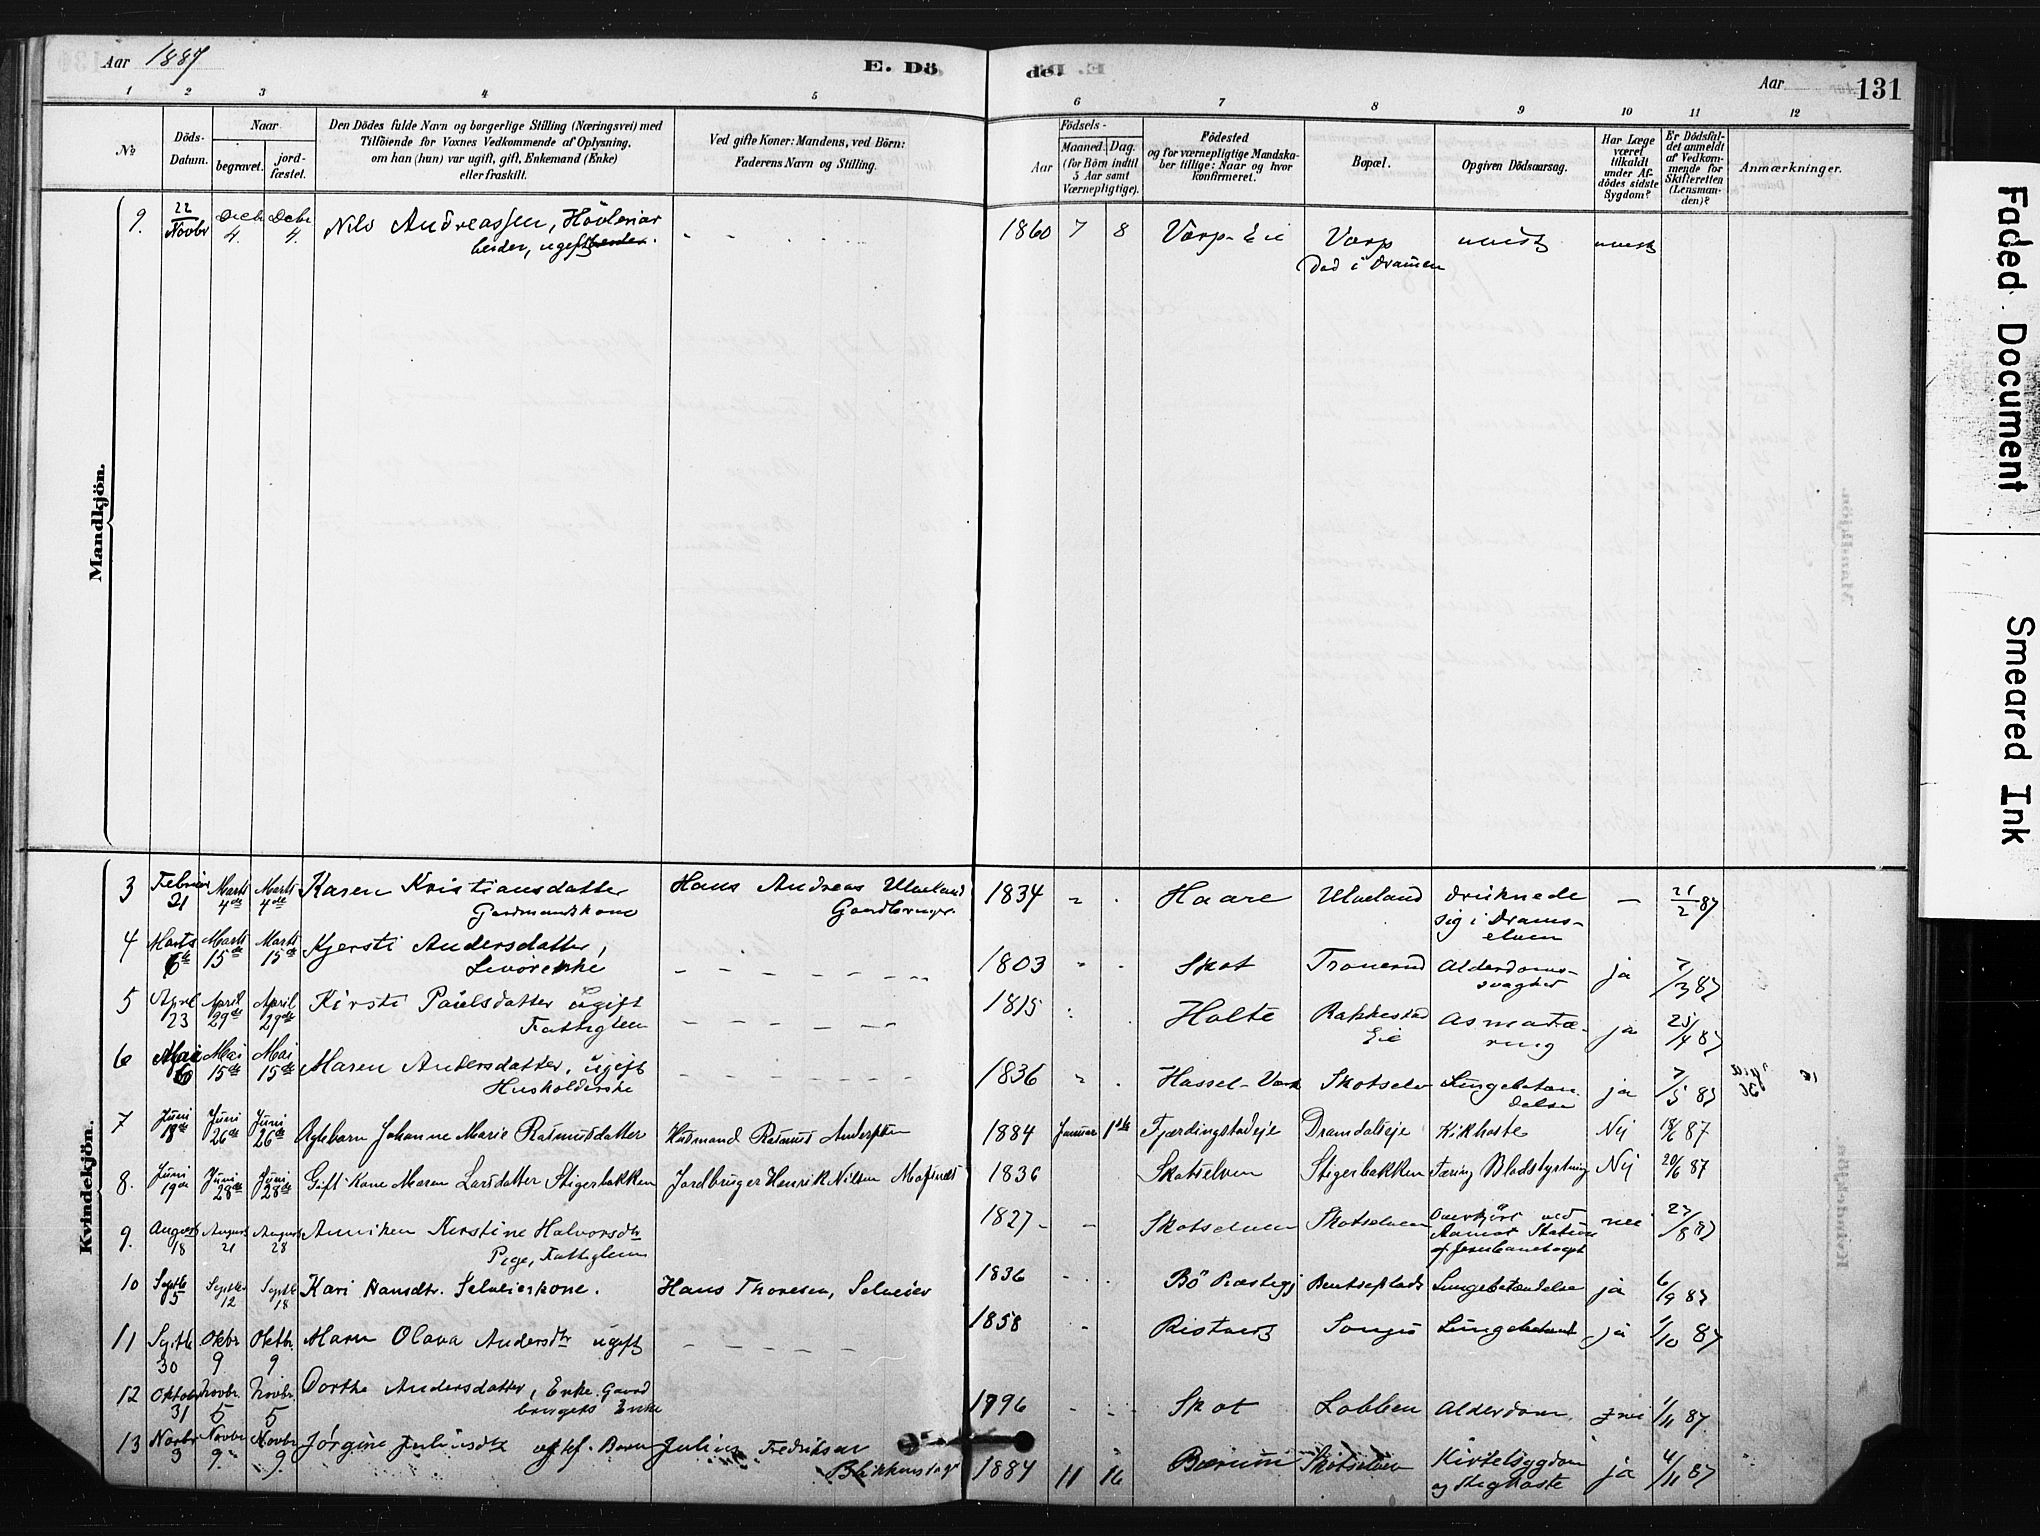 Aar 1887
E. Dö
de.
Aar
131
1 2 3 4 5 6 7 8 9 10 11 12
No
Döds-Datum.
Naar
begravet.
jord-fæstet.
Den Dödes fulde Navn og borgerlige Stilling (Næringsvei) med
Tilföiende for Voxnes Vedkommende af Oplysning,
om han (hun) var ugift, gift, Enkemand (Enke)
eller fraskilt.
Ved gifte Koner: Mandens, ved Börn:
Faderens Navn og Stilling.
Födsels-
Aar
Maaned. Dag.
(for Börn indtil
5 Aar samt
Værnepligtige).
Födested
og for værnepligtige Mandska-
ber tillige: Naar og hvor
konfirmeret.
Bopæl.
Opgiven Dödsaarsag.
Har Læge
været
tilkaldt
under Af-
dödes sidste
Sygdom?
Er Dödsfal-
det anmeldt
af Vedkom-
mende for
Skifteretten
(Lensman-
den)?
Anmærkninger.
Mandkjön.
9. 22 Novbr Decbr 4. Decbr 4. Nils Andreassen, 1860 7 8 Varp
ugift
Död i Dramen
Kvindekjön.
3 Februar 21 Marts 4de Marts 4de Karen Kristiansdatter Hans Andreas Ulveland 1834 Haare Ulveland druknede — 21/2 87
Gaardmandskone Gaardbruger sig i Drams-
elven
4 Marts 6te Marts 15de Marts 15de Kjersti Andersdatter, 1803 Skot Tronerud Alderdoms- ja 7/3 87
svaghed
5 April 23 April 29de April 29de Kirsti Paulsdatter ugift 1815 Holte Rakkestad ja 25/4 87
Fattiglem Eie
6 Mai 6 Mai 15de Mai 15de Maren Andersdatter, ugift 1836 Hassel-Værk Skotselv Lungebetæn ja 7/5 87
Husholderske delse
7 Juni 18de Juni 26de Juni 26de Johanne Marie Rasmusdatter Husmand Rasmus Anderssen 1884 Januar 1ste Fjærdingstadeje Dramdalseje Kikhoste Nej 18/6 87
8. Juni 19de Juni 28de Juni 28de Gift Kone Maren Larsdatter Stigerbakken Jordbruger Henrik Nilsen 1836 Skotselven Stigerbakken Tæring Blodstyrtning Nej 20/6 87
9. August 18 August 21 August 28 Anniken Kirstine Halvorsdtr 1827 Skotselven Skotselven Overkjört ved nei 27/8 87
Pige, Fattiglem Aamot Station
af Jernbanetoget
10 Septb 5 Septbr 12 Septb 18 Kari Hansdtr. Selveierkone. Hans Thoresen, Selveier 1836 Bö Præstegj Bentseplads Lungebetændelse ja 6/9 87
11 Septb 30 Oktbr 9 Oktbr 9 Maren Olava Andersdtr ugift 1858 Lungebetænd ja 1/10 87
12 Oktobr 31 Novbr. 5 Novbr. 5 Dorthe Andersdatter, Enke. Gaard 1796 Skot Lobben Alderdom 1/11 87
brugers Enke
13 Novbr 3 Novbr 9 Novbr 9 Jørgine Juliusdtr Barn Julius Fredriksen 1884 11 16 Bærum Skotselven Kirtelsygdom ja 4/11 87
og Kighoste
Faded Document
Smeared Ink